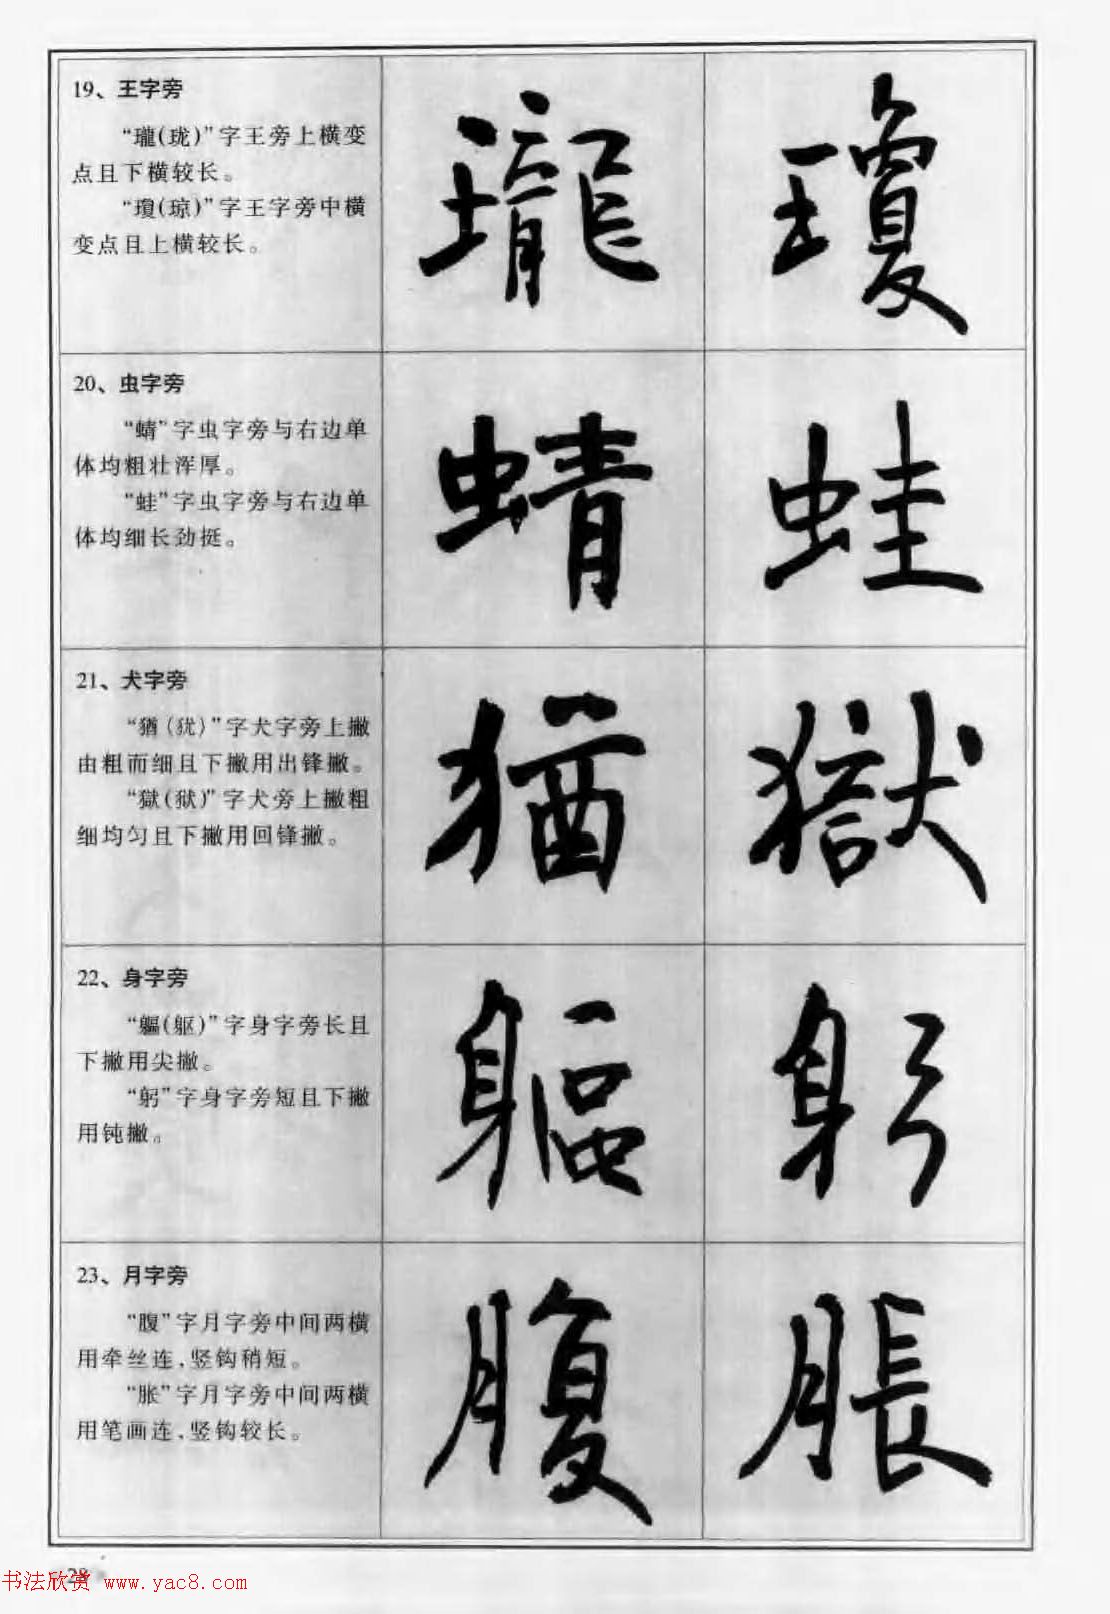 19、王字旁
“瓏(珑)”字王旁上横变
点且下横较长。
“瓊(琼)”字王字旁中横
变点且上横较长。
瓏 瓊
20、虫字旁
“蜻”字虫字旁与右边单
体均粗壮浑厚。
“蛙”字虫字旁与右边单
体均细长劲挺。
蜻 蛙
21、犬字旁
“猶(犹)”字犬字旁上撇
由粗而细且下撇用出锋撇。
“獄(狱)”字犬旁上撇粗
细均匀且下撇用回锋撇。
猶 獄
22、身字旁
“軀(躯)”字身字旁长且
下撇用尖撇。
“躬”字身字旁短且下撇
用钝撇。
軀 躬
23、月字旁
“腹”字月字旁中间两横
用牵丝连,竖钩稍短。
“胀”字月字旁中间两横
用笔画连,竖钩较长。
腹 脹
28
书法欣赏 www.yac8.com